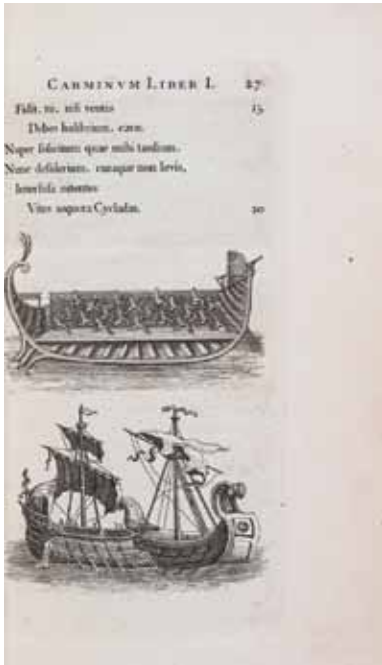 CARMINVM LIBER I. 27
Fidit. tu, nisi ventis 15
Debes ludibrium, cave.
Nuper sollicitum quæ mihi tædium,
Nunc desiderium, curaque non levis,
Interfusa nitentes
Vites æquora Cycladas. 20